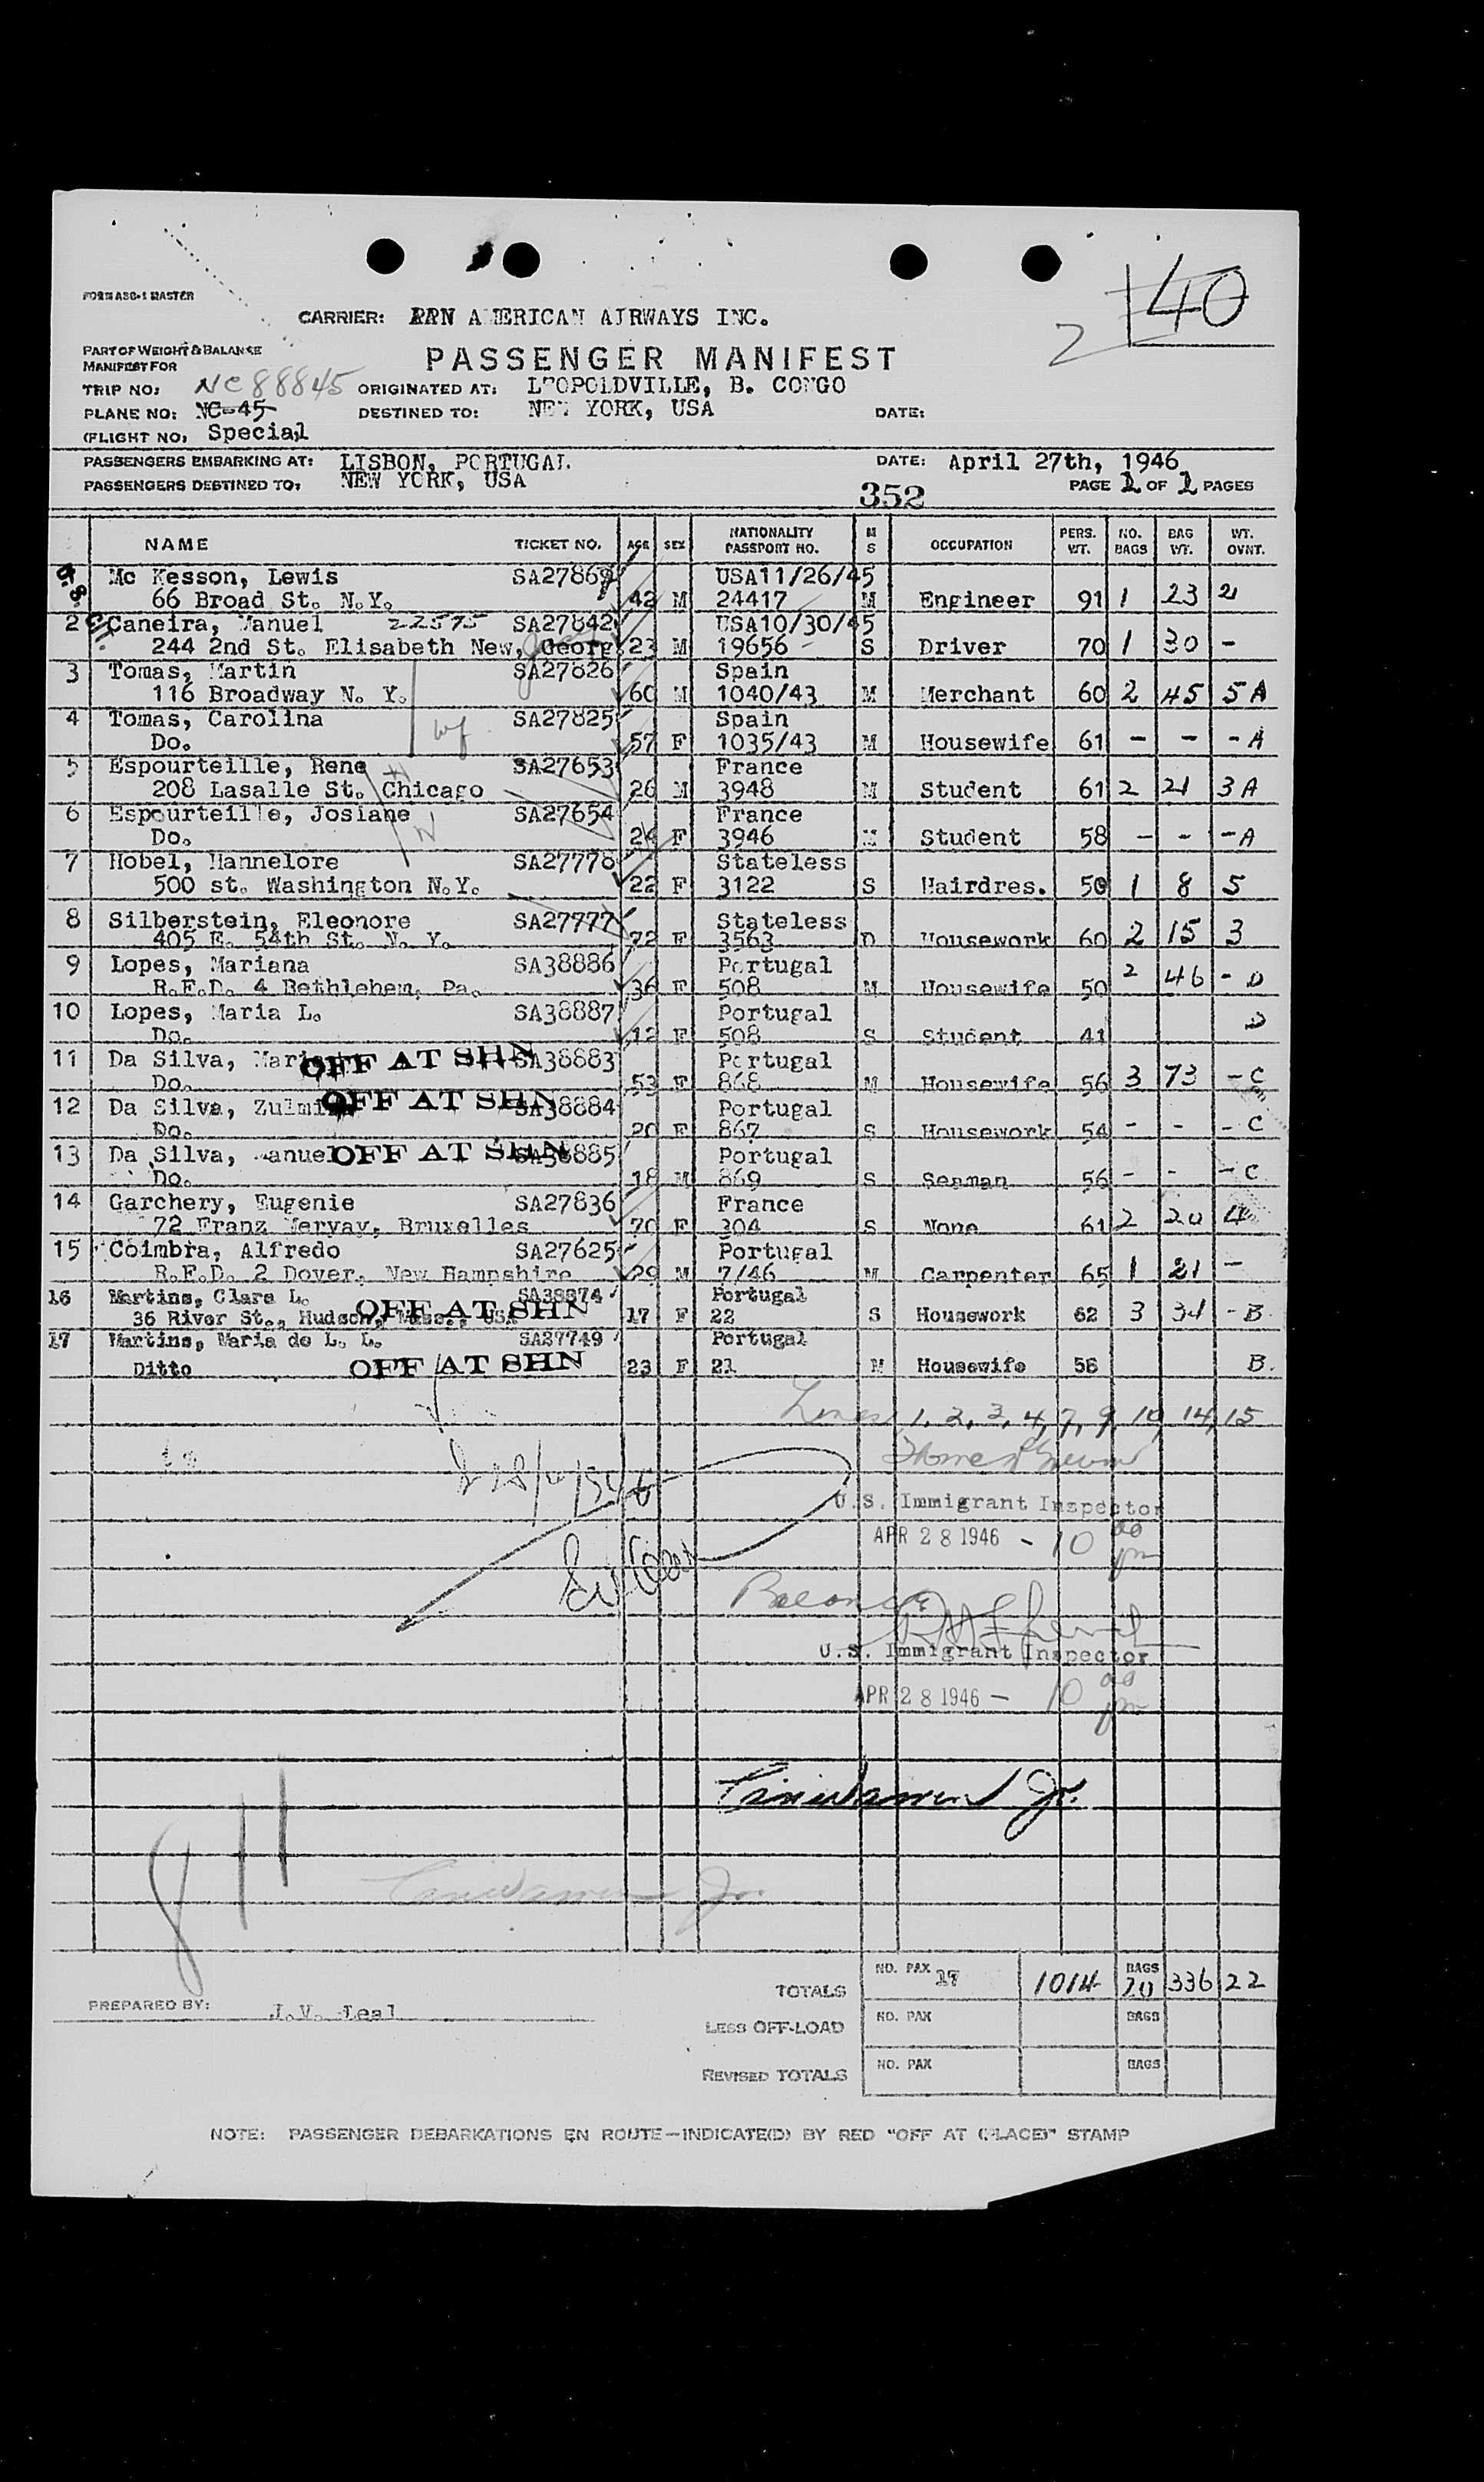 FORM ABC-1 MASTER
140
2
CARRIER: PAN AMERICAN AIRWAYS INC.
PART OF WEIGHT & BALANCE
MANIFEST FOR
PASSENGER MANIFEST
TRIP NO: NC88845 ORIGINATED AT: LEOPOLDVILLE, B. CONGO
PLANE NO: NC-45 DESTINED TO: NEW YORK, USA DATE:
(FLIGHT NO, Special)
PASSENGERS EMBARKING AT: LISBON, PORTUGAL DATE: April 27th, 1946
PASSENGERS DESTINED TO: NEW YORK, USA PAGE 1 OF 1 PAGES
352
NAME TICKET NO. AGE SEX NATIONALITY PASSPORT NO. M S OCCUPATION PERS. WT. NO. BAGS BAG WT. WT. OVNT.
U.S. Cit.
Mc Kesson, Lewis SA27869 USA11/26/45
66 Broad St. N.Y. 42 M 24417 M Engineer 91 1 23 2
2 Caneira, Manuel 22575 SA27842 USA10/30/45
244 2nd St. Elisabeth New, Georg 23 M 19656 - S Driver 70 1 30 -
3 Tomas, Martin SA27826 Spain
116 Broadway N. Y. 60 M 1040/43 M Merchant 60 2 45 5 A
4 Tomas, Carolina wf SA27825 Spain
Do. 57 F 1035/43 M Housewife 61 - - - A
5 Espourteille, Rene H SA27653 France
208 Lasalle St. Chicago 26 M 3948 M Student 61 2 21 3 A
6 Espourteille, Josiane W SA27654 France
Do. 24 F 3946 M Student 58 - - - A
7 Hobel, Hannelore SA27778 Stateless
500 st. Washington N.Y. 22 F 3122 S Hairdres. 50 1 8 5
8 Silberstein, Eleonore SA27777 Stateless
405 E. 54th St. N. Y. 72 F 3563 D Housework 60 2 15 3
9 Lopes, Mariana SA38886 Portugal
R.F.D. 4 Bethlehem, Pa. 36 F 508 M Housewife 50 2 46 - D
10 Lopes, Maria L. SA38887 Portugal
Do. 12 F 508 S Student 41 D
11 Da Silva, Mari OFF AT SHN SA38883 Portugal
Do. 53 F 868 M Housewife 56 3 73 - C
12 Da Silva, Zulmi OFF AT SHN SA38884 Portugal
Do. 20 F 867 S Housework 54 - - - C
13 Da Silva, Manuel OFF AT SHN SA38885 Portugal
Do. 18 M 869 S Seaman 56 - - - C
14 Garchery, Eugenie SA27836 France
72 Franz Mervay, Bruxelles 70 F 304 S None 61 2 20 4
15 Coimbra, Alfredo SA27625 Portugal
R.F.D. 2 Dover, New Hampshire 29 M 7/46 M Carpenter 65 1 21 -
16 Martins, Clara L. SA38874 Portugal
36 River St., Hudson, Mass., USA OFF AT SHN 17 F 22 S Housework 62 3 34 - B
17 Martins, Maria de L. L. SA27749 Portugal
Ditto OFF AT SHN 23 F 21 M Housewife 58 B.
Lines 1, 2, 3, 4, 7, 9, 10, 14, 15
U.S. Immigrant Inspector
APR 28 1946 - 10 00 pm
Balance
U.S. Immigrant Inspector
APR 28 1946 - 10 00 pm
Jr.
Jr.
8 11
TOTALS NO. PAX 17 1014 BAGS 20 336 22
PREPARED BY: J.V. Leal
LESS OFF-LOAD NO. PAX BAGS
REVISED TOTALS NO. PAX BAGS
NOTE: PASSENGER DEBARKATIONS EN ROUTE—INDICATE(D) BY RED "OFF AT (PLACE)" STAMP